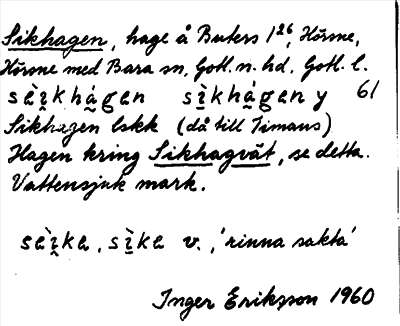 Sikhagen, hage å Buters 1²⁶, Hörsne,
Hörsne med Bara sn, Gotl. n. hd, Gotl. l.
sὲi̯kha̱gen sìkha̱gen y 61
Sikhagen lskk (då till Timans)
Hagen kring Sikhagvät, se detta.
Vattensjuk mark.
sὲi̯ka, sìka v., 'rinna sakta'
Inger Eriksson 1960